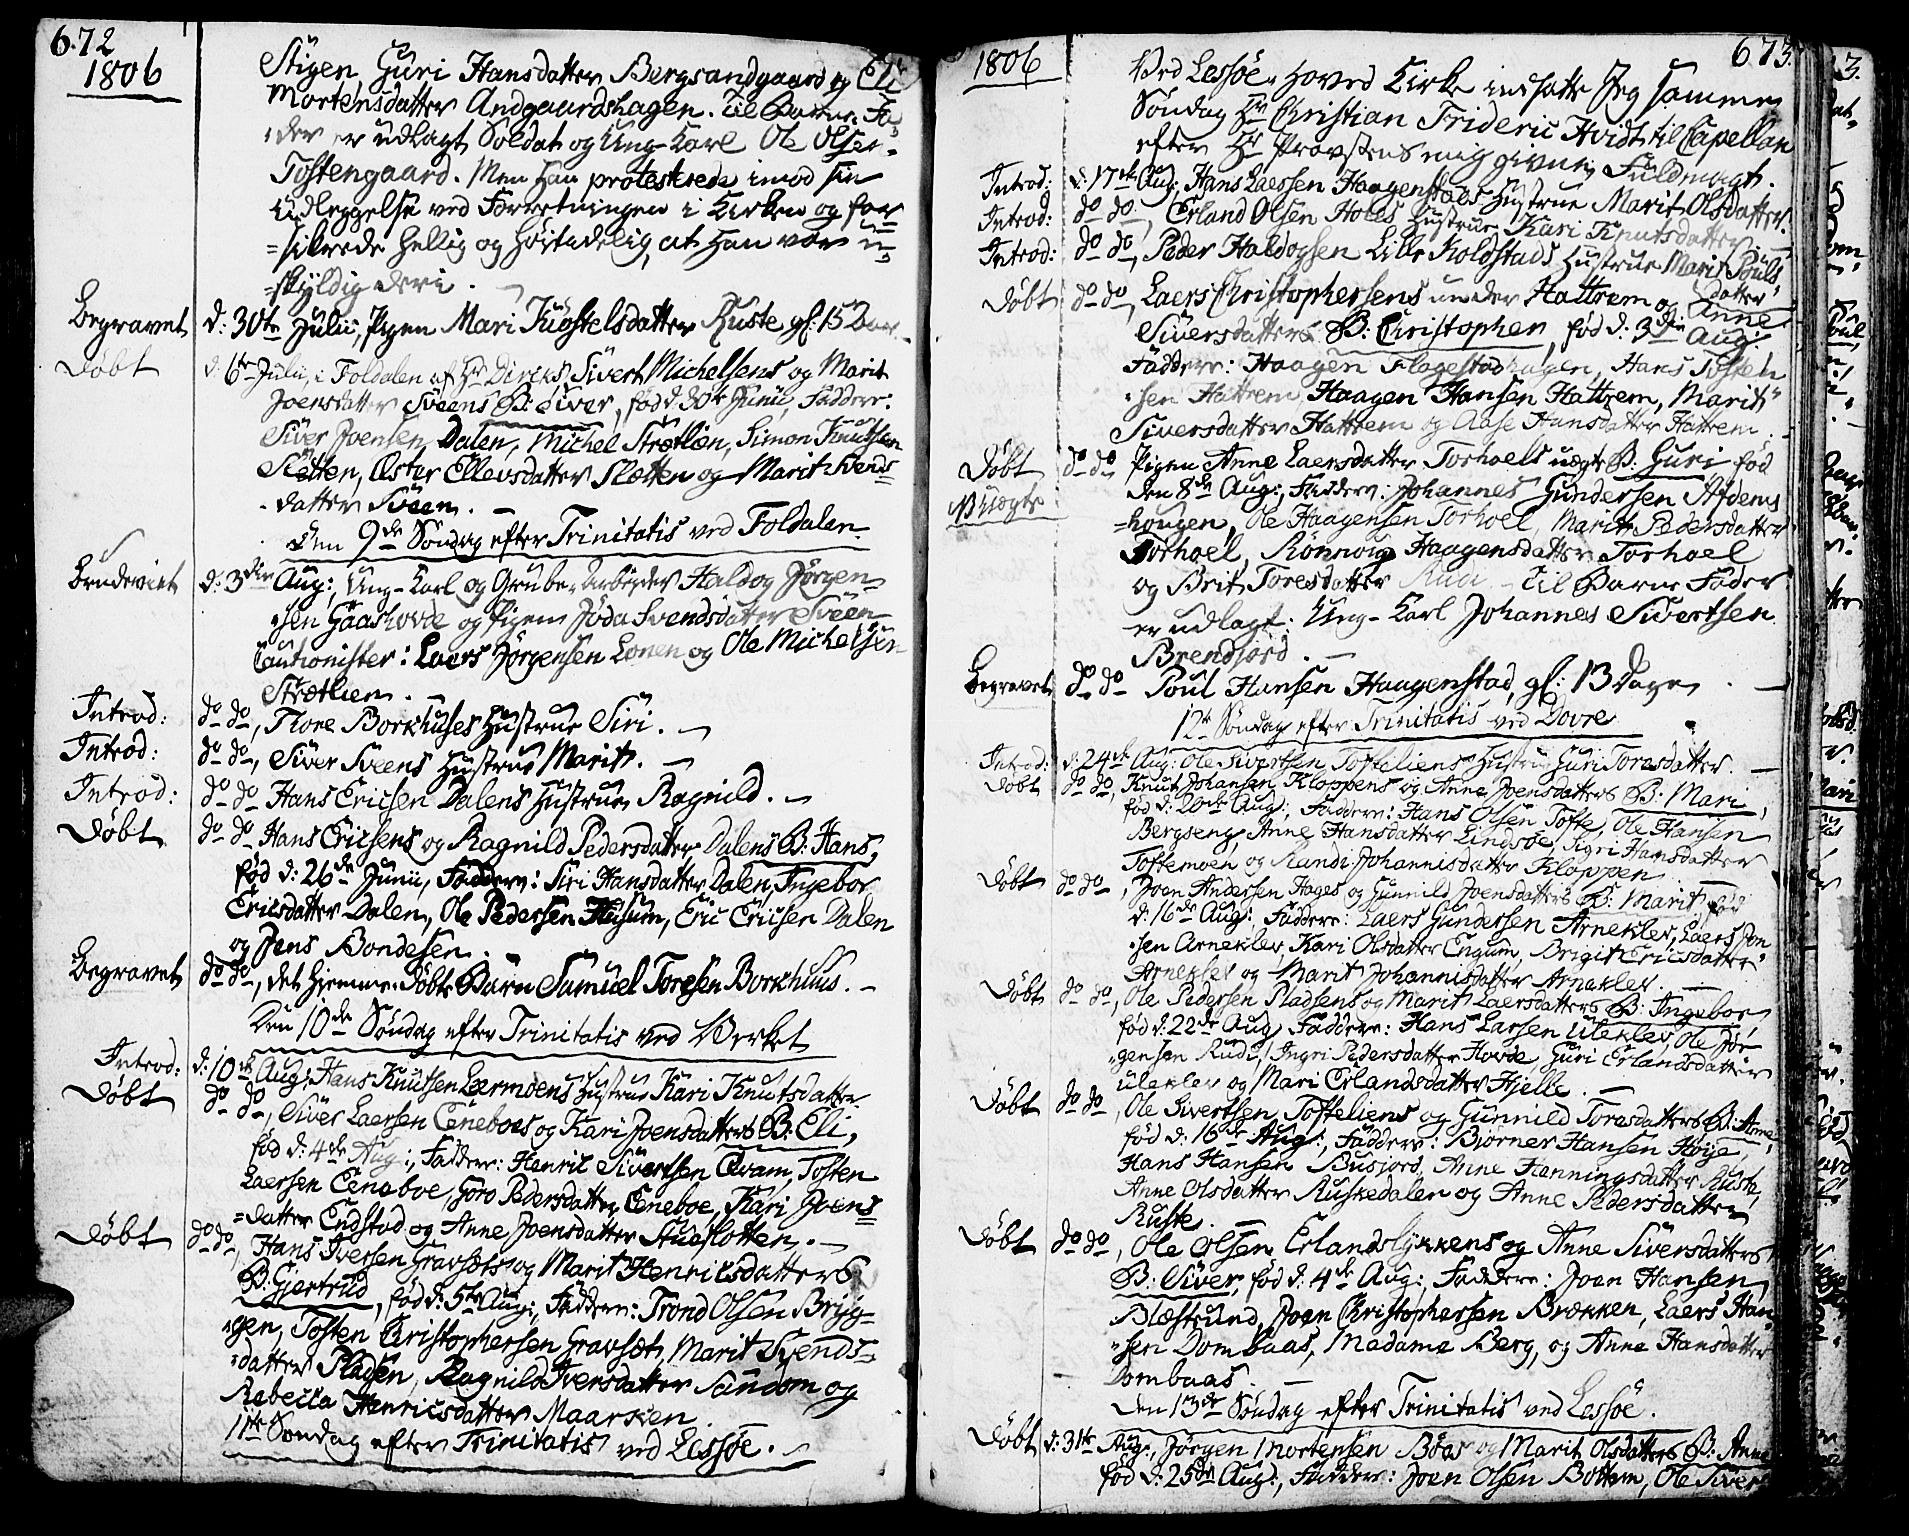 672
1806
Stigen, Guri Hansdatter Bergsandgaard og
Mortensdatter Andgaardshagen. Til Barne-Fa-
der er udlagt Soldat og Ung-Karl Ole Olsen
Toftengaard. Men han protesterede imod sin
Udleggelse ved Forretningen i Kirken og for-
sikrede hellig og høitidelig, at han var u-
skyldig deri. -
Begravet d: 30te Julii, Pigen Mari Kuostelsdatter Ruste, gl: 15
Døbt d: 6te Julii, i Foldalen af Hr Dircks Sivert Michelsens og Marit
Joensdatter Sveens B: Siver, fød d. 30te Junii, Faddere:
Siver Joensen Dalen, Michel Strætlien, Simon Knutsen
Sletten, Æster Ellevsdatter Sletten og Marit Svends-
datter Sveen. -
Den 9de Søndag efter Trinitatis ved Foldalen
Brudeviet d: 3die Aug:, Ung-Karl og Grube-Arbejder Haldog Jørgen-
sen Gaashovde og Pigen Jøda Svendsdatter Sveen
Cautionister: Laers Jørgensen Lonen og Ole Michelsen
Strætlien.
Introd: do do, Tore Borkhuses Hustrue Siri. -
Introd: do do, Siver Sveens Hustrue Marit. -
Introd: do do Hans Ericsen Dalens Hustrue Ragnild. -
Døbt do do Hans Ericsens og Ragnild Pedersdatter Dalens B: Hans,
fød d: 26de Junii, Faddere: Siri Hansdatter Dalen, Ingebor
Ericsdatter Dalen, Ole Pedersen Husum, Eric Ericsen Dalen
og Jens Bondesen.
Begravet do do, det hjemme-døbte Barn Samuel Toresen Borkhuus. -
Den 10de Søndag efter Trinitatis ved Verket
Introd: d: 10de Aug: Hans Knutsen Lærmoens Hustrue Kari Knutsdatter
Døbt do do, Siver Laersen Ceneboes og Kari Joensdatters B: Eli,
fød d: 4de Aug:, Faddere: Henric Sivertsen Qvam, Tosten
Laersen Ceneboe, Goro Pedersdatter Ceneboe, Kari Joens-
datter Endstad og Anne Joensdatter Stueslotten. -
Døbt do do, Hans Iversen Gravsets og Marit Henricsdatters
B: Gjertrud, fød d: 5te Aug:, Faddere: Trond Olsen Bryg-
gen, Tosten Christophersen Gravset, Marit Svends-
datter Pladsen, Ragnild Iversdatter Sandom og
Rebecca Henricsdatter Maarsten.
11te Søndag efter Trinitatis ved Lessøe. -
1806
673
Ved Lessøe Hoved Kirke indsatte Jeg samme
Søndag Hr Christian Frideric Hvidt til Capellan
efter Hr Provstens mig givne Fuldmagt.
Introd: d: 17de Aug: Hans Laersen Haagenstads Hustrue Marit Olsdatter
Introd: do do, Erland Olsen Holes Hustrue Kari Knutsdatter
Introd: do do, Peder Haldogsen Lille Koldstads Hustrue Marit Pouls-
datter
Døbt do do, Laers Christophersens under Hattrem og Anne
Siversdatters B: Christopher, fød d: 3die Aug:
Faddere: Haagen Flagestadhagen, Hans Tosten-
sen Hattrem, Haagen Hansen Hattrem, Marit
Siversdatter Hattrem og Aase Hansdatter Hattrem. -
Døbt do do Pigen Anne Laersdatter Torhoels uægte B: Guri fød
Uægte den 8de Aug:, Faddere: Johannes Gundersen Afdems-
hougen, Ole Haagensen Torhoel, Marit Pedersdatter
Torhoel, Rønnoug Haagensdatter Torhoel
og Brit Toresdatter Rudi - Til Barne Fader
er udlagt: Ung-Karl Johannes Sivertsen
Brendjord. -
Begravet do do Poul Hansen Haagenstad, gl: 13 Dage -
12te Søndag efter Trinitatis ved Dovre
Introd: d: 24de Aug: Ole Sivertsen Tofteliens Hustrue Guri Toresdatter. -
Døbt do do, Knut Johansen Kloppens og Anne Joensdatters B: Mari,
fød d: 20de Aug:, Faddere: Hans Olsen Tofte, Ole Hansen
Bergseng, Anne Hansdatter Lindsøe, Sigri Hansdatter
Toftemoen og Randi Johannisdatter Kloppen. -
Døbt do do, Joen Andersen Hages og Gunnild Joensdatters B: Marit fød
d: 16de Aug: Faddere: Laers Gundersen Arneklev, Laers Jon-
sen Arneklev, Kari Olsdatter Engum, Brigit Ericsdatter
Arneklev og Marit Johannisdatter Arneklev. -
Døbt do do, Ole Pedersen Pladsens og Marit Laersdatters B: Ingebor
fød d: 22de Aug Faddere: Hans Larsen Uleklev, Ole Jør-
gensen Rudi, Ingri Pedersdatter Hovde, Guri Erlandsdatter
Uleklev og Mari Erlandsdatter Hjelle. -
Døbt do do, Ole Sivertsen Tofteliens og Gunnild Toresdatters B: Anne
fød d: 16de Aug:, Faddere: Bjørner Hansen Høije,
Hans Hansen Busjord, Anne Henningsdatter Ruste,
Anne Olsdatter Ruskedalen og Anne Pedersdatter
Ruste. -
Døbt do do, Ole Olsen Erlandslykkens og Anne Siversdatters
B: Siver, fød d: 4de Aug: Faddere: Joen Hansen
Blæstrud, Joen Christophersen Brækken, Laers Han-
sen Dombaas, Madame Berg, og Anne Hansdatter
Dombaas. -
Den 13de Søndag efter Trinitatis ved Lessøe.
Døbt d: 31te Aug:, Jørgen Mortensen Bøas og Marit Olsdatters B: Anne
fød d: 25de Aug:, Faddere: Joen Olsen Bottem, Ole Siver